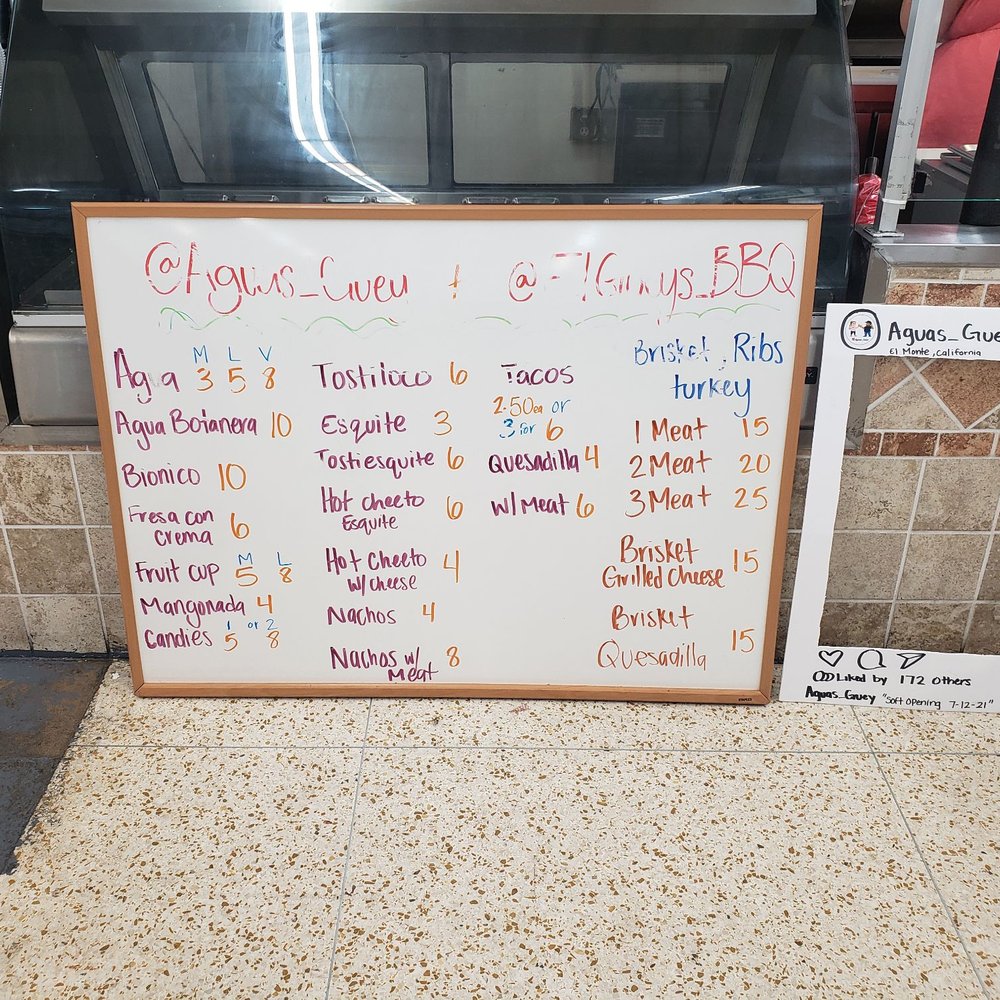 @Aguas_Guey + @
BBQ
Agua M 3 L 5 V 8
Agua Botanera 10
Bionico 10
Fresa con
crema 6
Fruit cup M 5 L 8
Mangonada 4
Candies 1 5 or 2 8
Tostiloco 6
Esquite 3
Tostiesquite 6
Hot cheeto
Esquite 6
Hot Cheeto
w/ cheese 4
Nachos 4
Nachos w/
Meat 8
Tacos
2.50ea or
3 for 6
Quesadilla 4
w/ Meat 6
Brisket, Ribs
turkey
1 Meat 15
2 Meat 20
3 Meat 25
Brisket
Grilled Cheese 15
Brisket
Quesadilla 15
Aguas_Gue
El Monte, California
Liked by 172 others
Aguas_Guey "Soft opening 7-12-21"